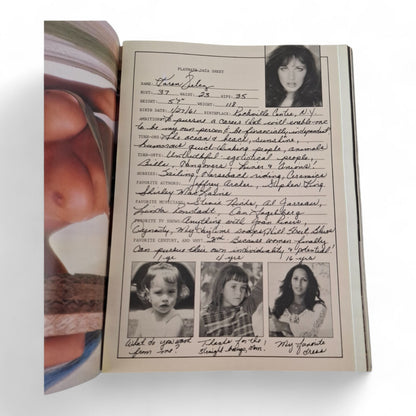 PLAYMATE DATA SHEET
NAME: Karen Velez
BUST: 37 WAIST: 23 HIPS: 35
HEIGHT: 5'7" WEIGHT: 118
BIRTH DATE: 1/27/61 BIRTHPLACE: Rockville Centre, N.Y.
AMBITIONS: To pursue a career that will enable me
to be my own person & be financially independent
TURN-ONS: The ocean & beach, sunshine,
humorous & quick-thinking people, animals
TURN-OFFS: Untruthful & egotistical people,
Bills, Manganese, Liver & Onions!
HOBBIES: Sailing, Horseback riding, Ceramics
FAVORITE AUTHORS: Jeffrey Archer, Stephen King
Shirley MacLaine
FAVORITE MUSICIANS: Stevie Nicks, Al Jarreau,
Linda Ronstadt, Dan Fogelberg
FAVORITE TV SHOWS: Anything with Joan Rivers,
Dynasty, My daytime soaps, Hill Street Blues
FAVORITE CENTURY, AND WHY: 20th Because women finally
can pursue their own individuality & potential!
1 yr. 4 yrs 16 yrs
What do you want from me?
Thanks for the straight bangs, Mom!
My favorite dress